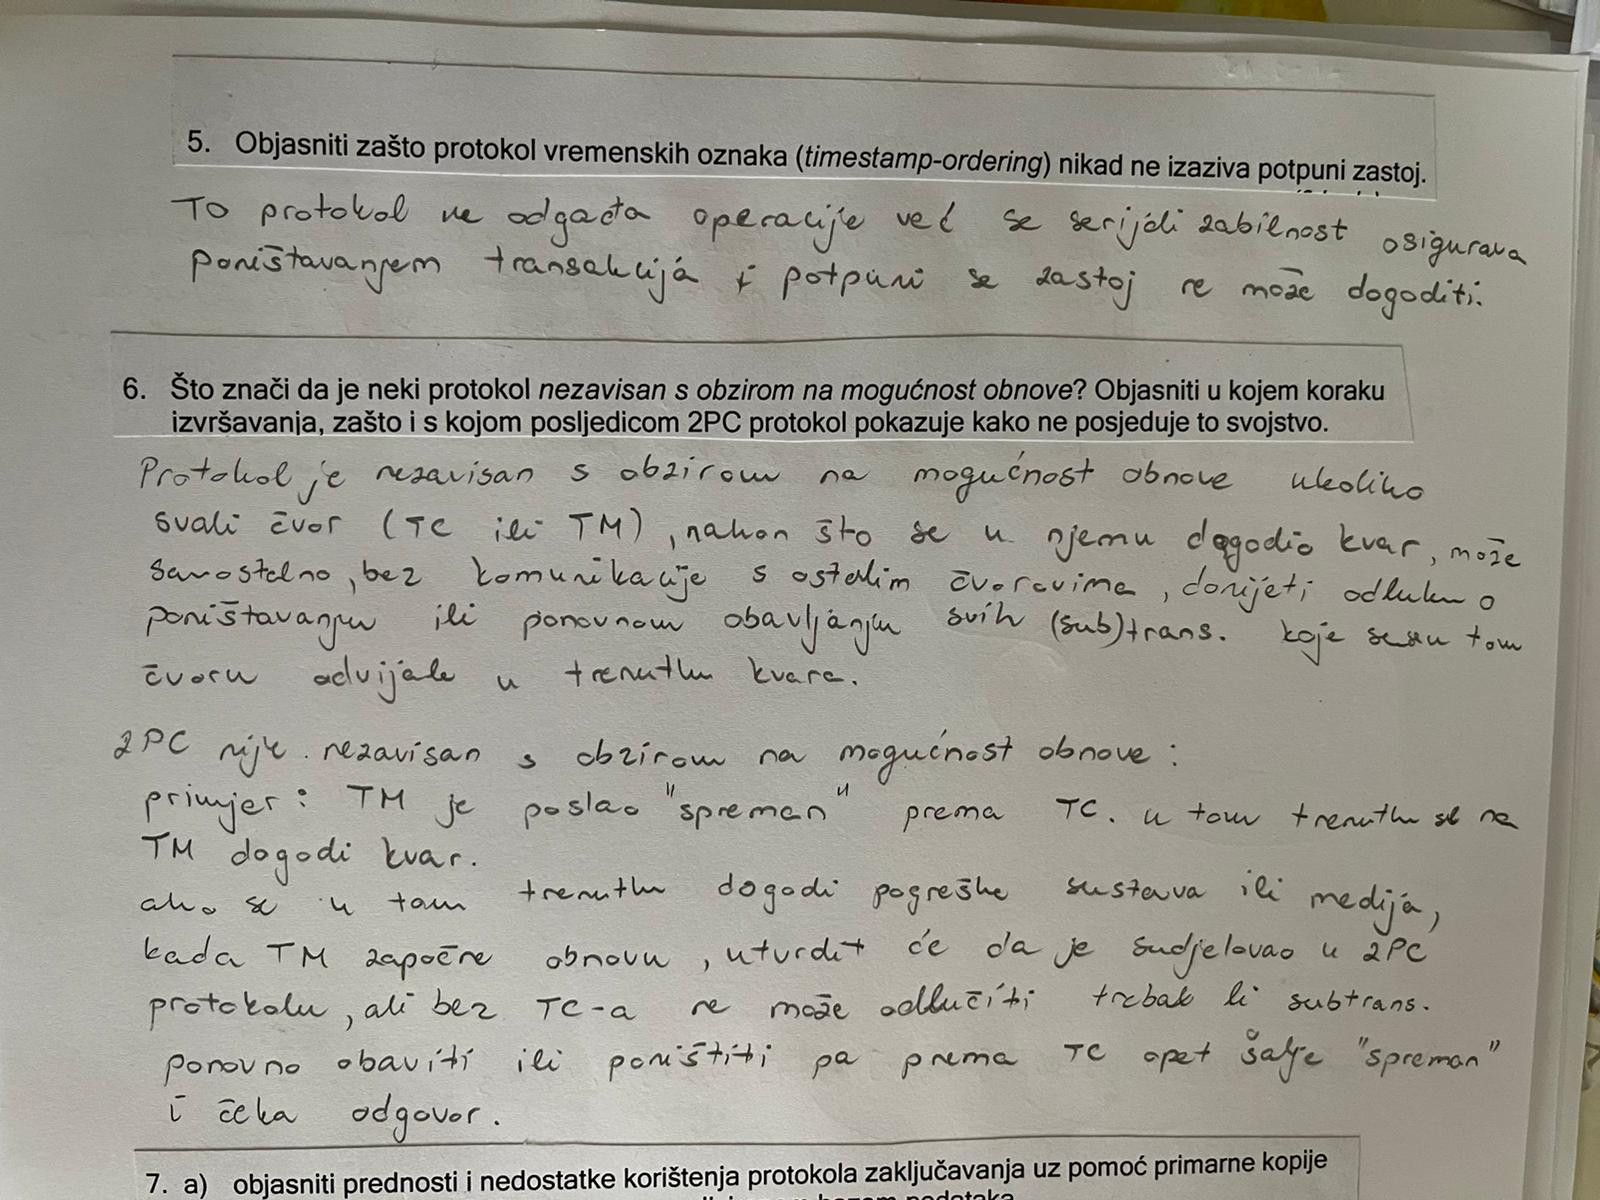 5. Objasniti zašto protokol vremenskih oznaka (timestamp-ordering) nikad ne izaziva potpuni zastoj.
To protokol ne odgađa operacije već se serijalizabilnost osigurava
poništavanjem transakcija i potpuni se zastoj ne može dogoditi.
6. Što znači da je neki protokol nezavisan s obzirom na mogućnost obnove? Objasniti u kojem koraku
izvršavanja, zašto i s kojom posljedicom 2PC protokol pokazuje kako ne posjeduje to svojstvo.
Protokol je nezavisan s obzirom na mogućnost obnove ukoliko
svaki čvor (TC ili TM), nakon što se u njemu dogodio kvar, može
samostalno, bez komunikacije s ostalim čvorovima, donijeti odluku o
poništavanju ili ponovnom obavljanju svih (sub)trans. koje se u tom
čvoru odvijale u trenutku kvara.
2PC nije nezavisan s obzirom na mogućnost obnove:
primjer: TM je poslao "spreman" prema TC. u tom trenutku se na
TM dogodi kvar.
ako se u tom trenutku dogodi pogreška sustava ili medija,
kada TM započne obnovu, utvrdit će da je sudjelovao u 2PC
protokolu, ali bez TC-a ne može odlučiti treba li subtrans.
ponovno obaviti ili poništiti pa prema TC opet šalje "spreman"
i čeka odgovor.
7. a) objasniti prednosti i nedostatke korištenja protokola zaključavanja uz pomoć primarne kopije